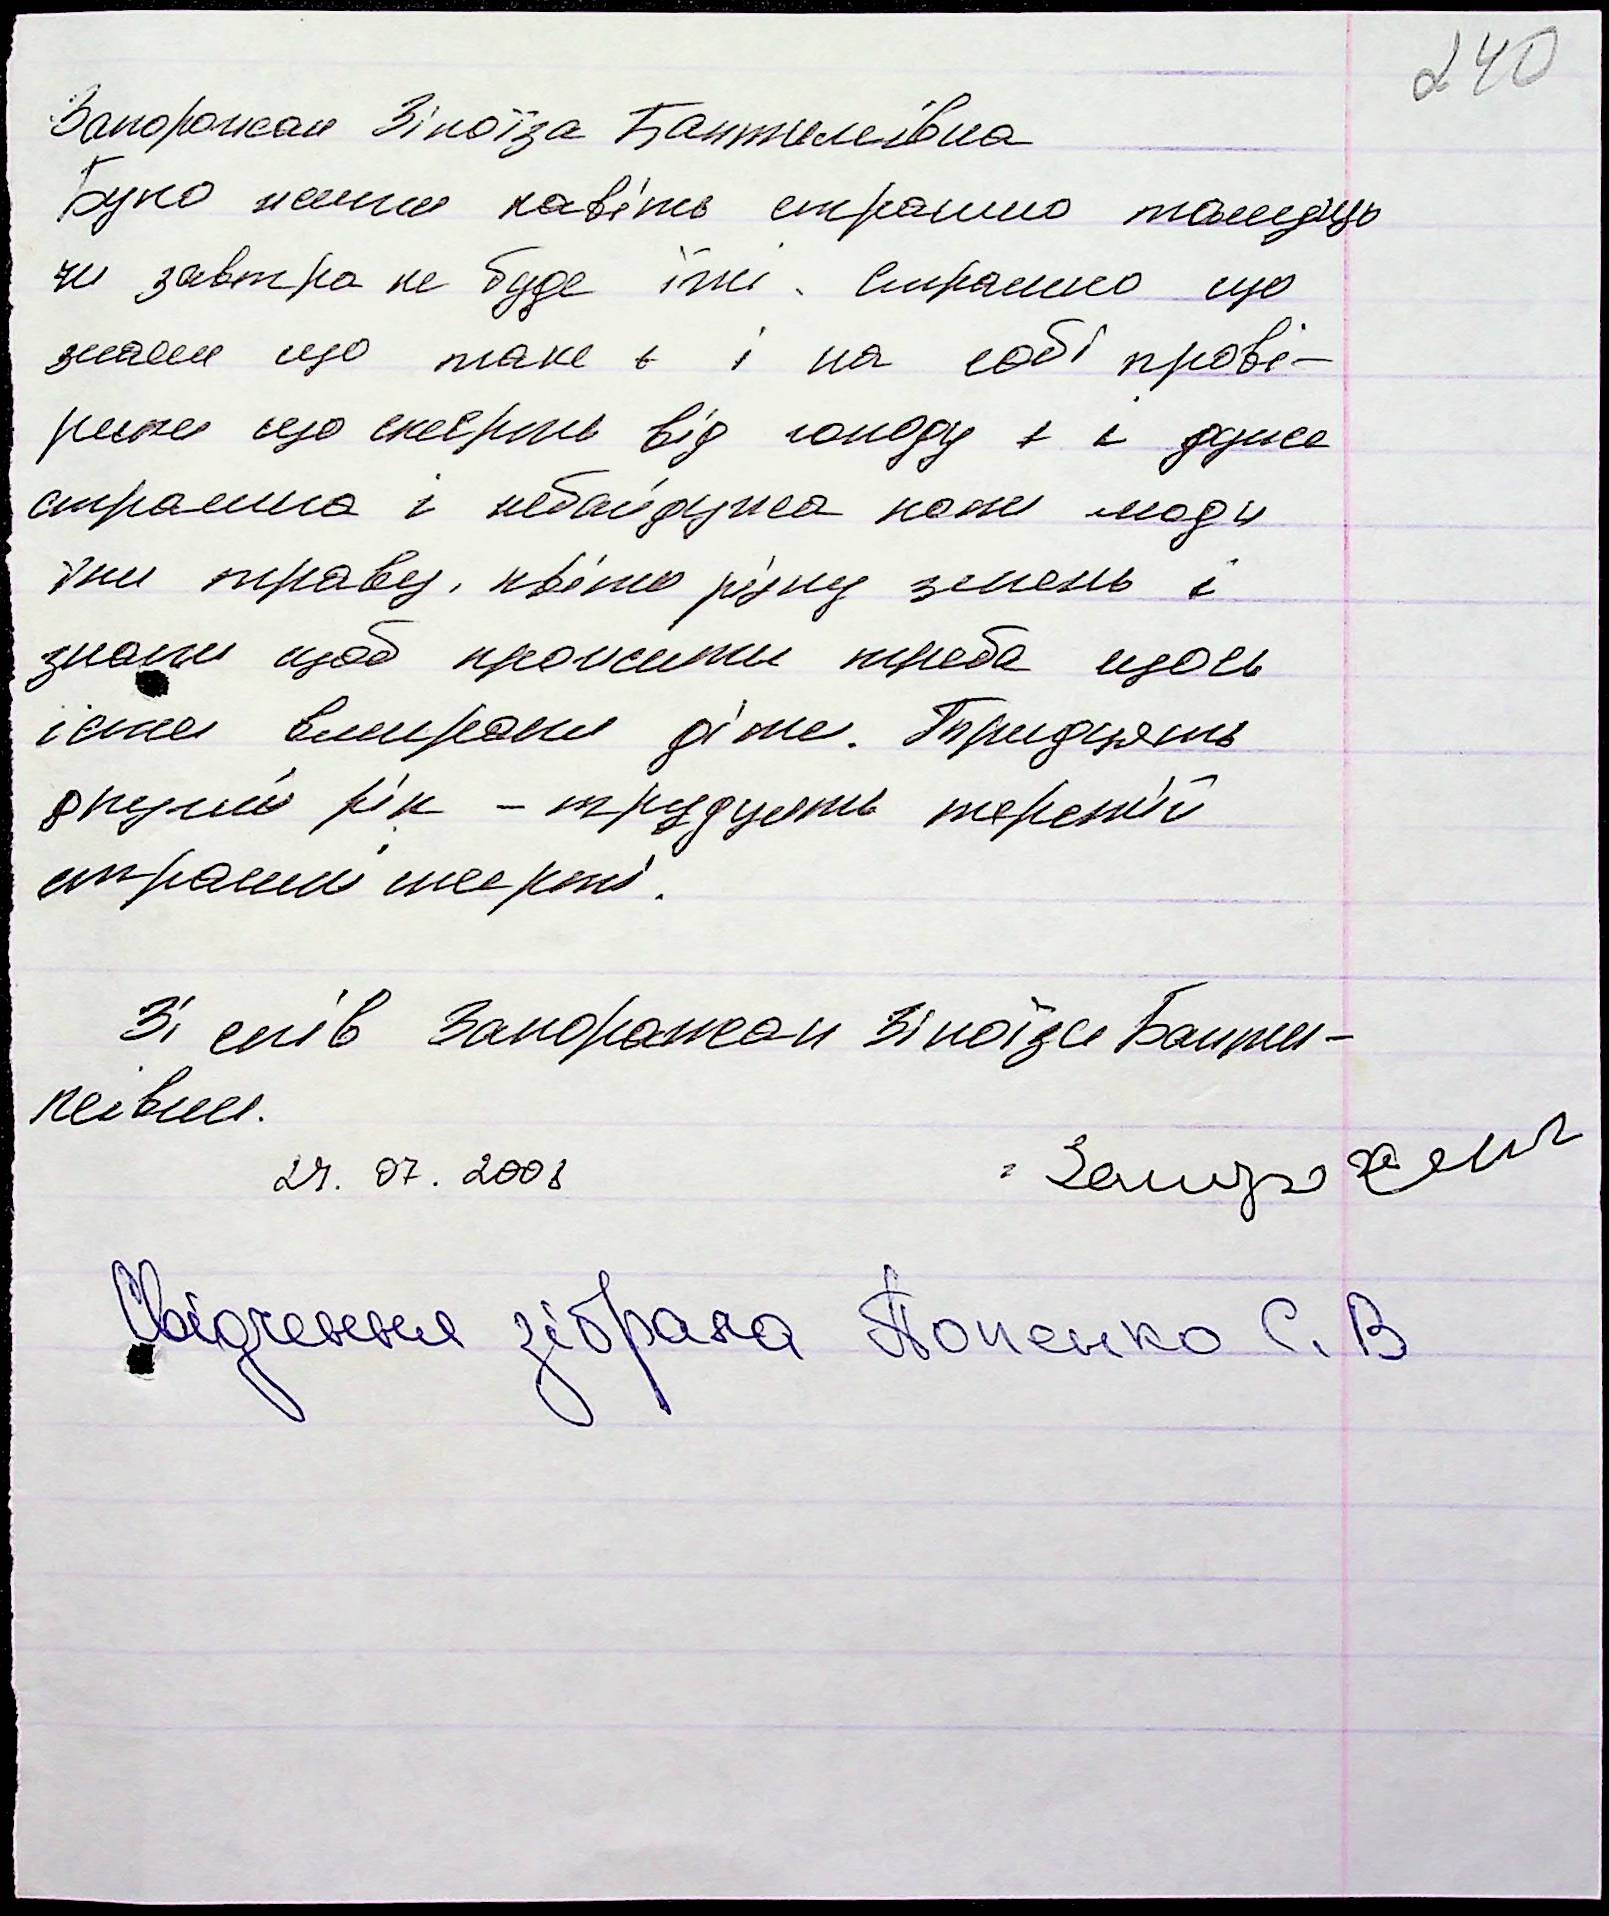 240
Запорожан Зілоїза Бантилеївна
Було нами навіть страшно
чи завтра не буде їжі. Страшно що
знали що таке є і на собі прові-
рили що смерть від голоду є і дуже
страшна і небайдужа коли люди
їли траву, квіти різну зелень і
знали щоб прожити треба щось
їсти вмирали діти. Тридцять
другий рік – тридцять третій
страшні смерті.
Зі слів Запорожан Зілоїзи Банти-
леївни.
24. 07. 2008
Запорожан
Свідчення зібрала Попенко С. В